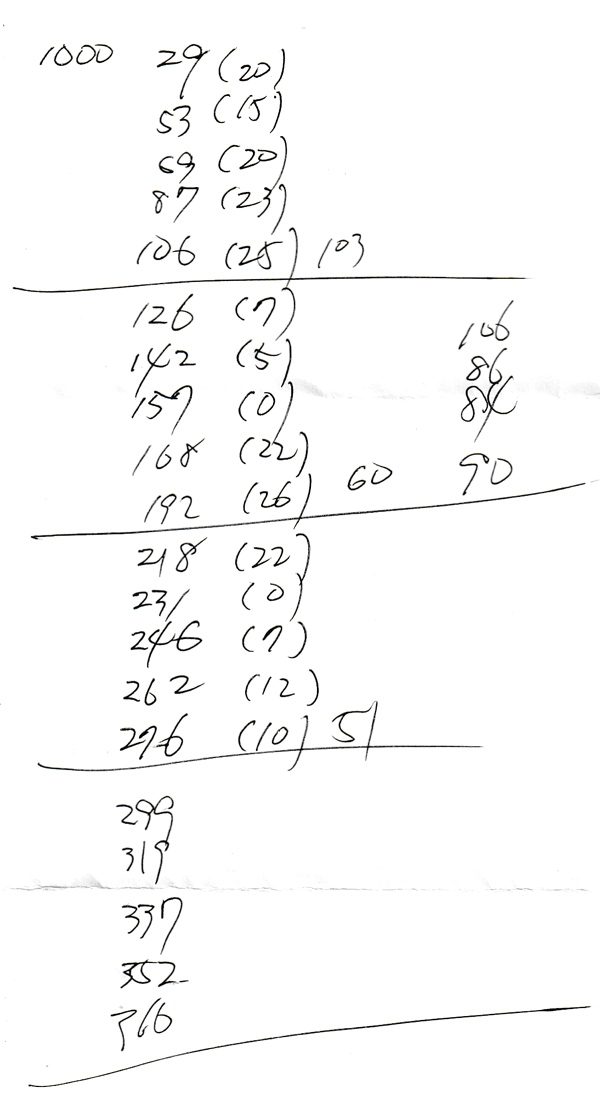 1000 29 (20)
53 (15)
69 (20)
87 (23)
106 (25) 103
126 (7)
106
142 (5)
86
157 (0)
84
168 (22)
192 (26) 60 90
218 (22)
231 (0)
246 (7)
262 (12)
276 (10) 51
299
319
337
352
366